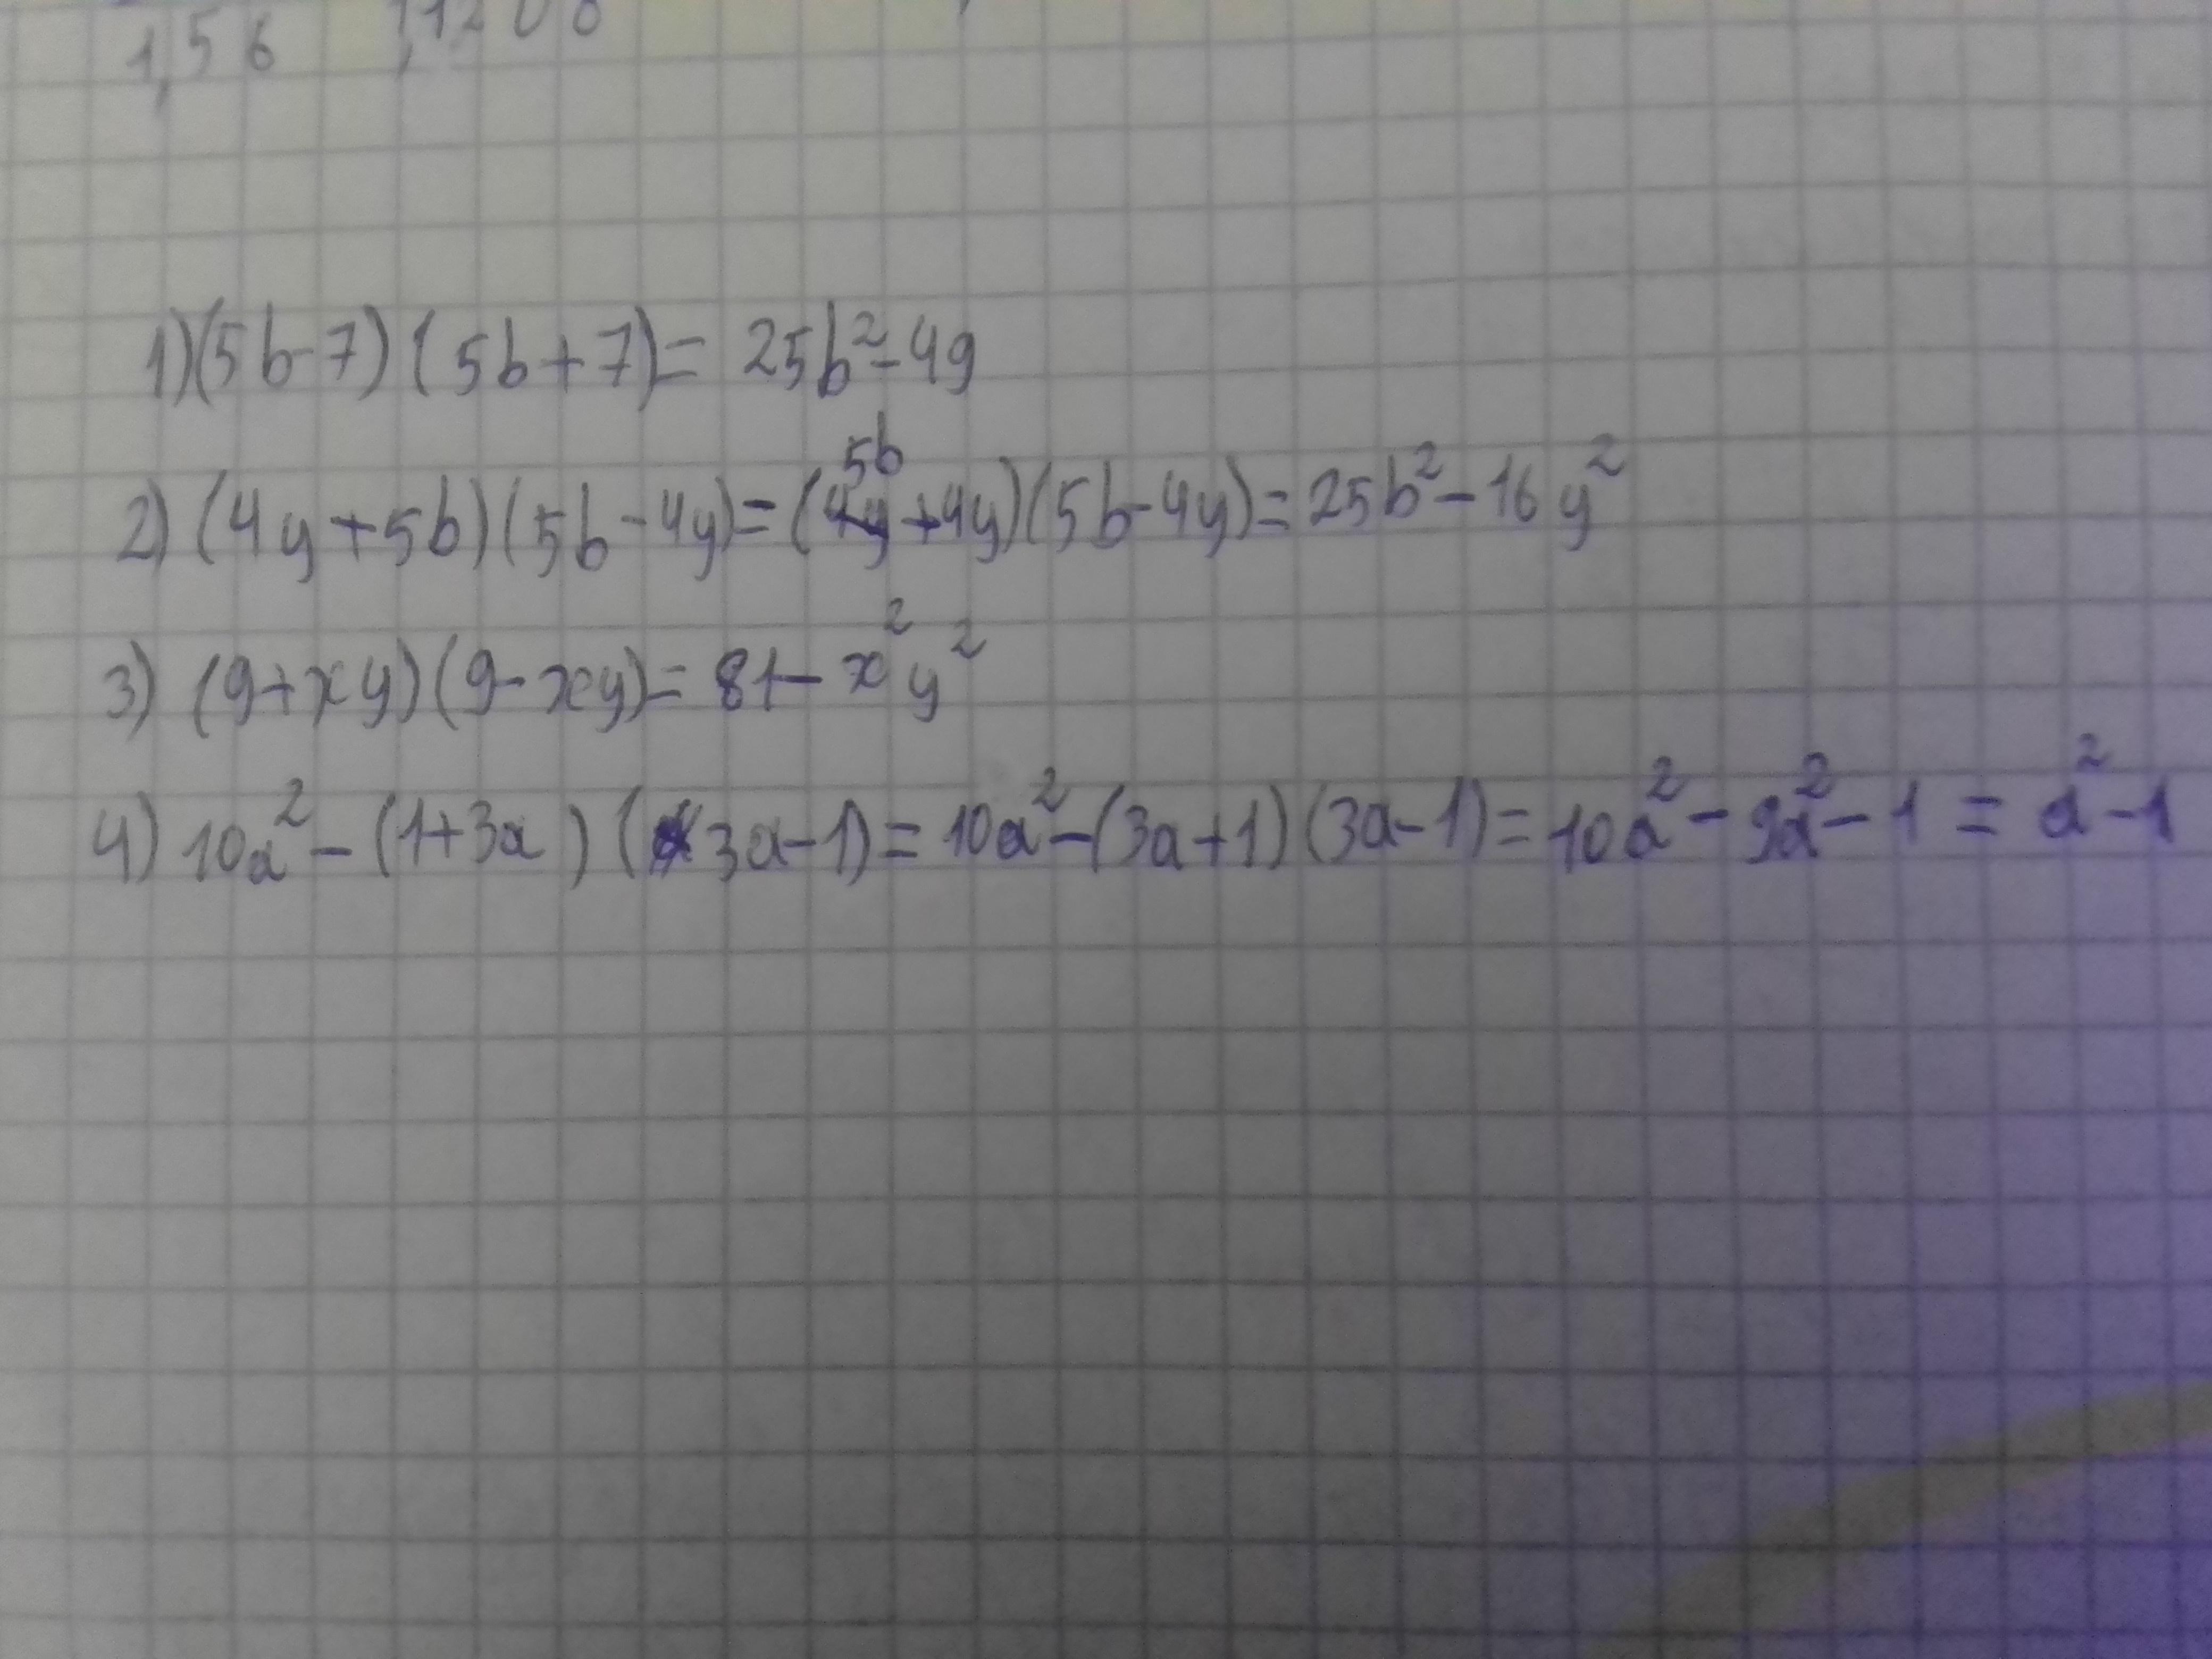 1,56
1) (5b-7) (5b+7) = 25b² - 49
2) (4y+5b) (5b-4y) = (5b+4y) (5b-4y) = 25b² - 16y²
3) (9+xy) (9-xy) = 81 - x²y²
4) 10a² - (1+3a) (3a-1) = 10a² - (3a+1) (3a-1) = 10a² - 9a² - 1 = a² - 1